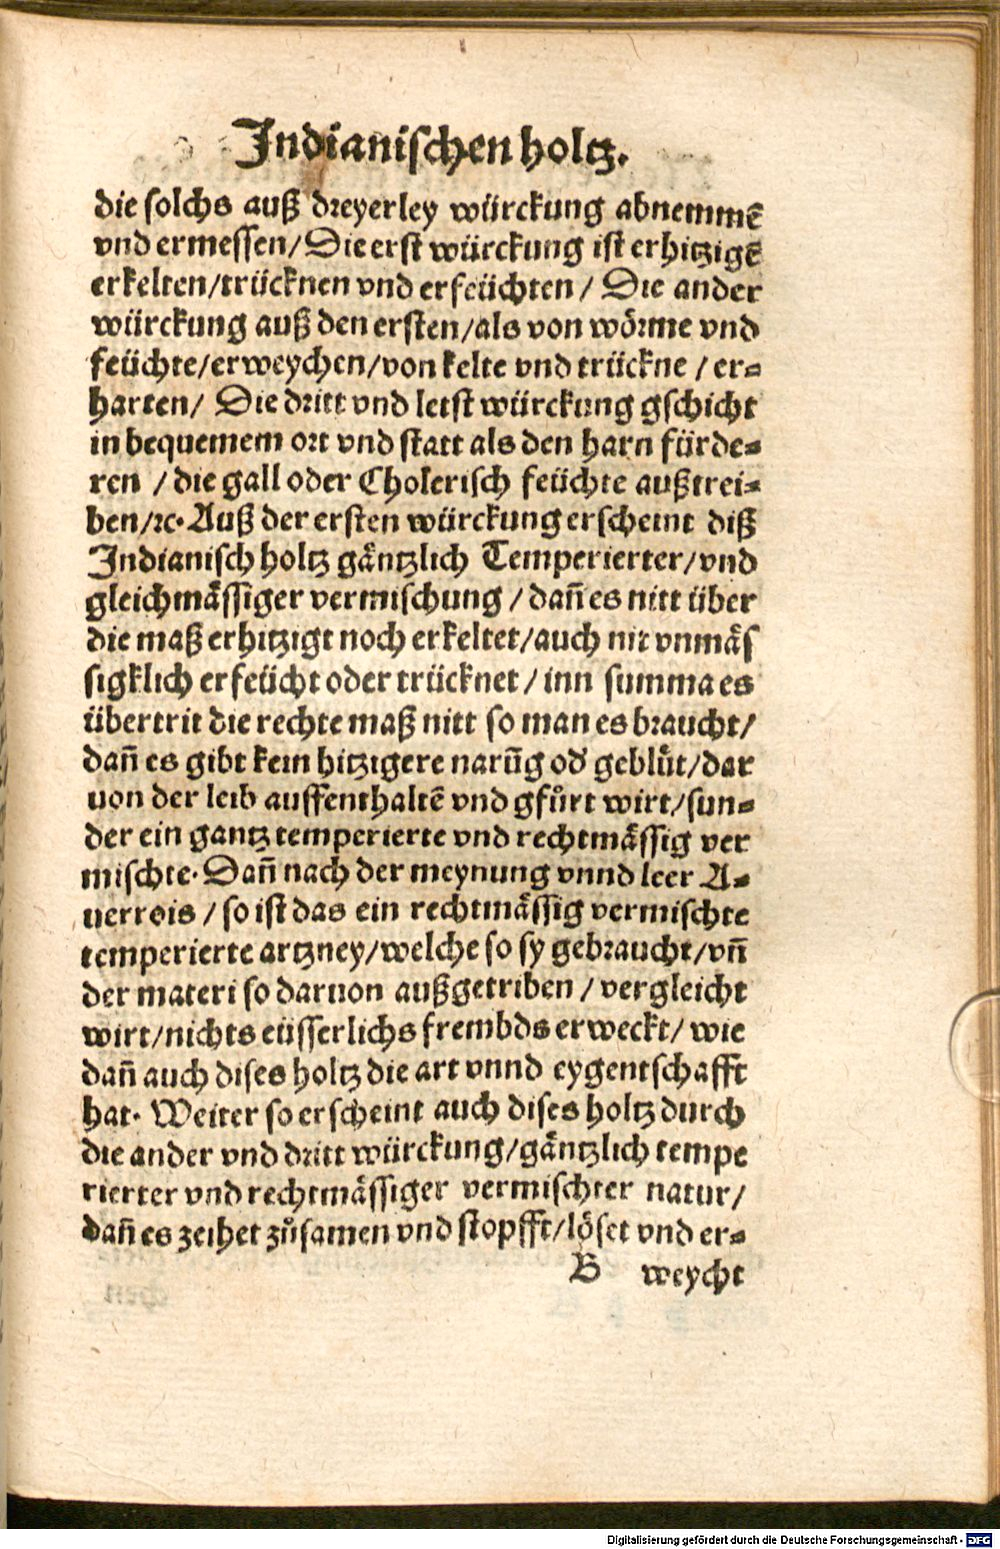 Indianischen holtz.
die solchs auß dreyerley würckung abnemmē
vnd ermessen/Die erst würckung ist erhitzigē
erkelten/trücknen vnd erfeüchten/ Die ander
würckung auß den ersten/als von wörme vnd
feüchte/erweychen/von kelte vnd trückne / er⸗
harten/ Die dritt vnd letst würckung gschicht
in bequemem ort vnd statt als den harn fürde⸗
ren / die gall oder Cholerisch feüchte außtrei⸗
ben/ꝛc. Auß der ersten würckung erscheint diß
Indianisch holtz gäntzlich Temperierter/vnd
gleichmässiger vermischung / dañ es nitt über
die maß erhitzigt noch erkeltet/auch nit vnmäs
sigklich erfeücht oder trücknet / inn summa es
übertrit die rechte maß nitt so man es braucht/
dañ es gibt kein hitzigere narūg od' geblůt/dar
uon der leib auffenthaltē vnd gfůrt wirt/sun⸗
der ein gantz temperierte vnd rechtmässig ver
mischte. Dañ nach der meynung vnnd leer A⸗
uerrois / so ist das ein rechtmässig vermischte
temperierte artzney/welche so sy gebraucht/vñ
der materi so daruon außgetriben / vergleicht
wirt/nichts eüsserlichs frembds erweckt/ wie
dañ auch dises holtz die art vnnd eygentschafft
hat. Weiter so erscheint auch dises holtz durch
die ander vnd dritt würckung/gäntzlich tempe
rierter vnd rechtmässiger vermischter natur/
dañ es zeihet zůsamen vnd stopfft/löset vnd er⸗
B weycht
Digitalisierung gefördert durch die Deutsche Forschungsgemeinschaft - DFG